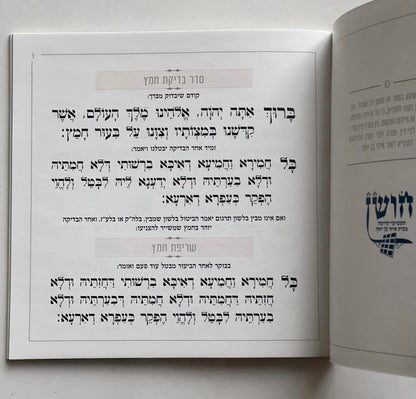 3
סדר בדיקת חמץ
קודם שיבדוק מברך:
בָּרוּךְ אַתָּה יְהֹוָה, אֱלֹהֵינוּ מֶלֶךְ הָעוֹלָם, אֲשֶׁר
קִדְּשָׁנוּ בְּמִצְוֹתָיו וְצִוָּנוּ עַל בִּעוּר חָמֵץ:
ומיד אחר הבדיקה יבטלנו ויאמר:
כָּל חֲמִירָא וַחֲמִיעָא דְּאִיכָּא בִרְשׁוּתִי דְּלָא חֲמִתֵּיהּ
וּדְלָא בִעַרְתֵּיהּ וּדְלָא יְדַעְנָא לֵיהּ לִבָּטֵל וְלֶהֱוֵי
הֶפְקֵר כְּעַפְרָא דְאַרְעָא:
ואם אינו מבין בלשון תרגום יאמר הביטול בלשון שמבין, בלה"ק או בלע"ז. ואחר הבדיקה
יזהר בחמץ שמשייר להצניעו:
שריפת חמץ
בבוקר לאחר הביעור מבטל עוד פעם ואומר:
כָּל חֲמִירָא וַחֲמִיעָא דְּאִיכָּא בִרְשׁוּתִי דַּחֲזִיתֵּיהּ וּדְלָא
חֲזִיתֵּיהּ דַּחֲמִתֵּיהּ וּדְלָא חֲמִתֵּיהּ דְּבִעַרְתֵּיהּ וּדְלָא
בִעַרְתֵּיהּ לִבָּטֵל וְלֶהֱוֵי הֶפְקֵר כְּעַפְרָא דְאַרְעָא:
©
חושן